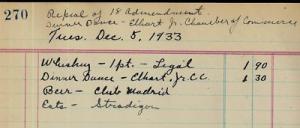 270
Repeal of 18 Amendment
Dinner Dance - Elhart Jr. Chamber of Commerce
Tues. Dec. 5, 1933
Whiskey - 1 pt. - Legal 1 90
Dinner Dance - Elhart, Jr. C C 6 30
Beer - Club Madrid
Eats -